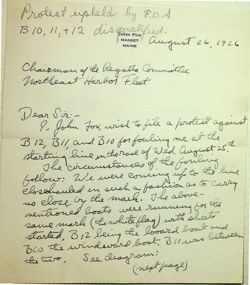 Protest upheld by F.O.S
B 10, 11, +12 disqualified.
JOHN FOX
MANSET
MAINE
August 26, 1926
Chairman of the Regatta Committee
Northeast Harbor Fleet
Dear Sir:-
I, John Fox, wish to file a protest against
B12, B11, and B10 for fouling me at the
starting line in the race of Wed. August 25th
The circumstances of the fouling
follow: We were coming up to the line
closehauled in such a fashion as to carry
us close by the mark. The above-
mentioned boats were running for the
same mark (the white flag) with sheets
started, B12 being the leeward boat and
B10 the windward boat, B11 was between
the two. See diagram:
(next page)